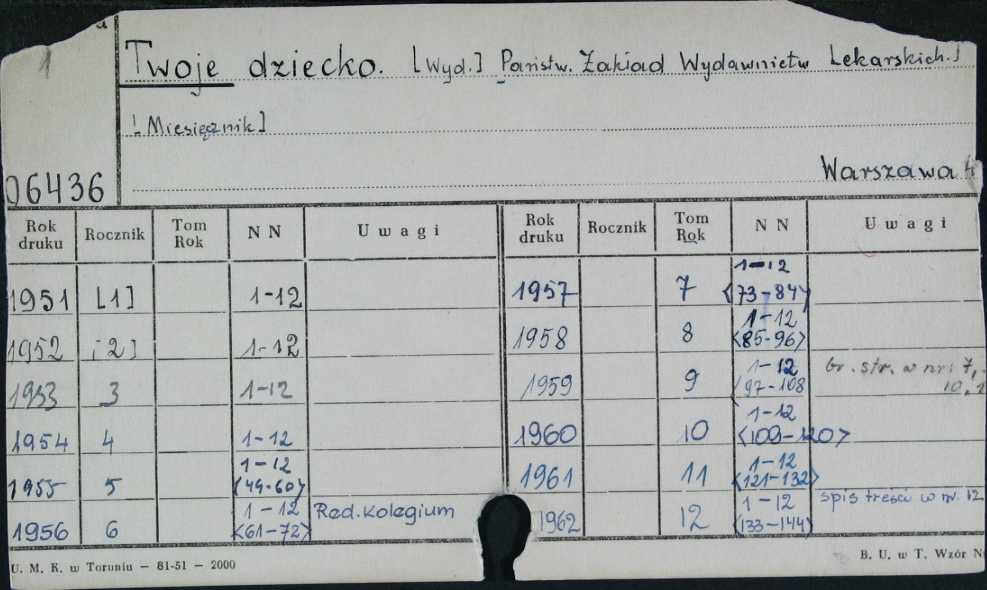 1
Twoje dziecko. [Wyd.] Państw. Zakład Wydawnictw Lekarskich.]
[Miesięcznik]
06436
Warszawa
Rok druku Rocznik Tom Rok NN Uwagi Rok druku Rocznik Tom Rok NN Uwagi
1951 [1] 1-12 1957 7 1-12 <73-84>
1952 [2] 1-12 1958 8 1-12 <85-96>
1953 3 1-12 1959 9 1-12 <97-108 br. str. w nr: 7, 10,
1954 4 1-12 1960 10 1-12 <109-120>
1955 5 1-12 <49-60> 1961 11 1-12 <121-132>
1956 6 1-12 <61-72> Red. Kolegium 1962 12 1-12 <133-144> spis treści w nr. 12
U. M. K. w Toruniu — 81-51 — 2000 B. U. w T. Wzór